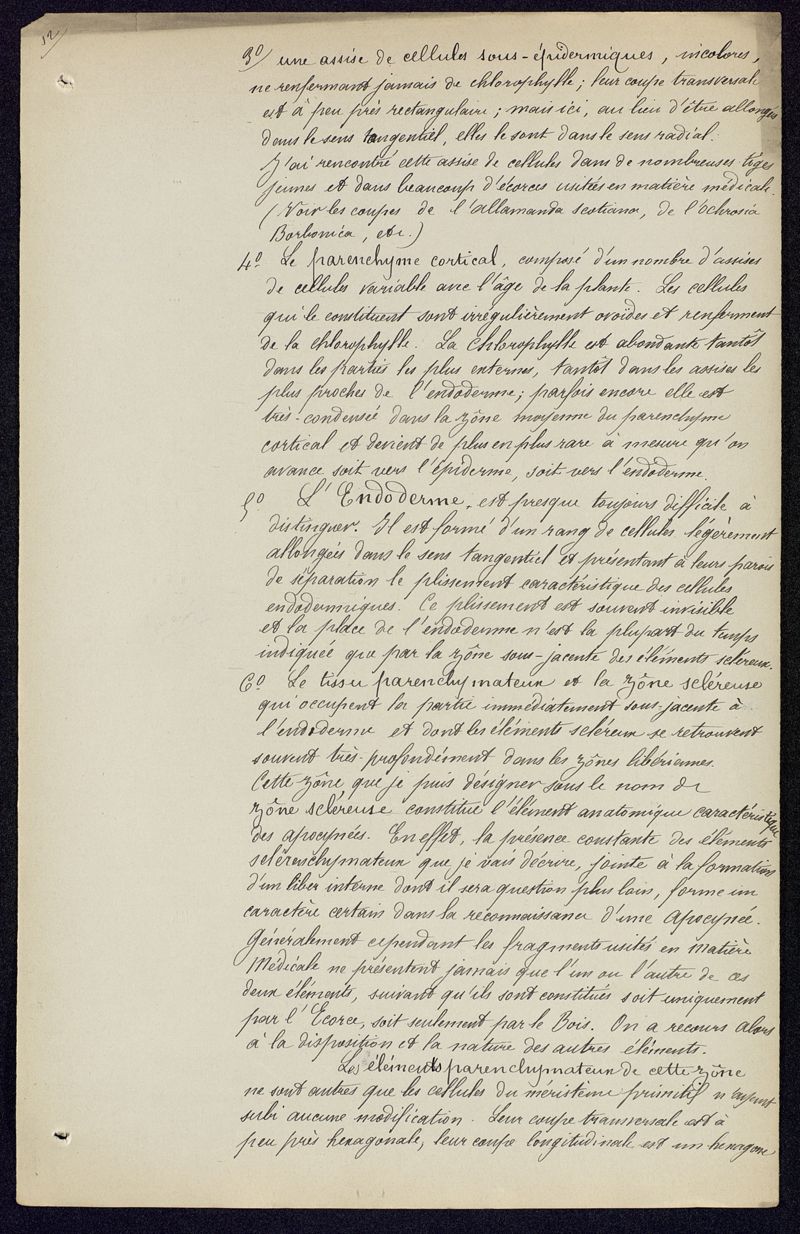 12/
3º/ une assise de cellules sous-épidermiques, incolores,
ne renfermant jamais de chlorophylle; leur coupe transversale
est à peu près rectangulaire; mais ici, au lieu d'être allongés
dans le sens tangentiel, elles le sont dans le sens radial.
J'ai rencontré cette assise de cellules dans de nombreuses tiges
jeunes et dans beaucoup d'écorces usités en matière médicale.
(Voir les coupes de l'allamanda scotiana, de l'ochrosia
Borbonica, etc.)
4º Le parenchyme cortical, composé d'un nombre d'assises
de cellules variable avec l'âge de la plante. Les cellules
qui le constituent sont irrégulièrement ovoïdes et renferment
de la chlorophylle. La chlorophylle est abondante tantôt
dans les parties les plus externes, tantôt dans les assises les
plus proches de l'endoderme; parfois encore elle est
très-condensée dans la zône moyenne du parenchyme
cortical et devient de plus en plus rare à mesure qu'on
avance soit vers l'épiderme, soit vers l'endoderme.
5º L'Endoderme, est presque toujours difficile à
distinguer. Il est formé d'un rang de cellules légèrement
allongées dans le sens tangentiel et présentant à leurs parois
de séparation le plissement caractéristique des cellules
endodermiques. Ce plissement est souvent invisible
et la place de l'endoderme n'est la plupart du temps
indiquée que par la zône sous-jacente des éléments scléreux.
6º Le tissu parenchymateux et la zône scléreuse
qui occupent la partie immédiatement sous-jacente à
l'endoderme et dont les éléments scléreux se retrouvent
souvent très-profondément dans les zônes libériennes.
Cette zône que je puis désigner sous le nom de
zône scléreuse constitue l'élément anatomique caractéristique
des apocynées. En effet, la présence constante des éléments
sclérenchymateux que je vais décrire, jointe à la formation
d'un liber interne dont il sera question plus loin, forme un
caractère certain dans la reconnaissance d'une apocynée.
Généralement cependant les fragments usités en Matière
Médicale ne présentent jamais que l'un ou l'autre de ces
deux éléments, suivant qu'ils sont constitués soit uniquement
par l'Ecorce, soit seulement par le Bois. On a recours alors
à la disposition et la nature des autres éléments.
Les éléments parenchymateux de cette zône
ne sont autres que les cellules du méristème primitif n'ayant
subi aucune modification. Leur coupe transversale est à
peu près hexagonale, leur coupe longitudinale est un hexagone